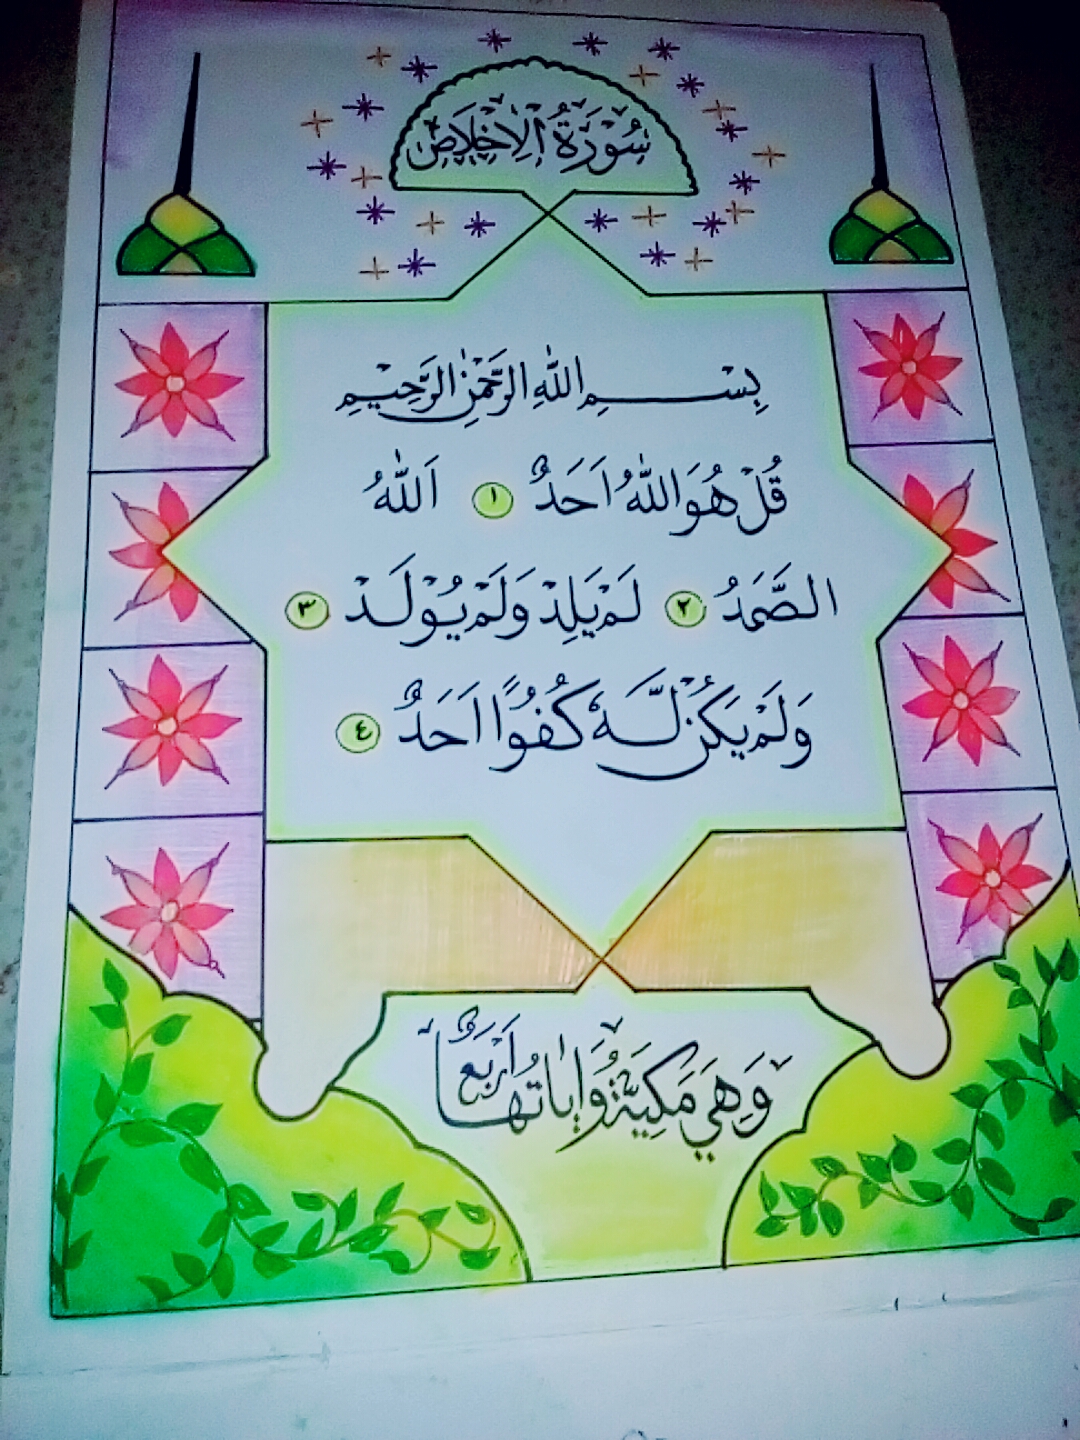 سُوْرَةُ الْاِخْلَاصِ
بِسْمِ اللهِ الرَّحْمٰنِ الرَّحِيْمِ
قُلْ هُوَ اللّٰهُ اَحَدٌ ١ اَللّٰهُ
الصَّمَدُ ٢ لَمْ يَلِدْ وَلَمْ يُوْلَدْ ٣
وَلَمْ يَكُنْ لَّهٗ كُفُوًا اَحَدٌ ٤
وَهِيَ مَكِيَّةٌ وَاٰيَاتُهَا اَرْبَعٌ